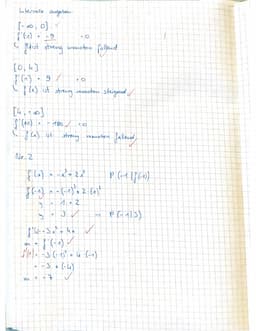 Intervalle angeben
[-∞, 0]
f'(-1) = -9 <0
f ist streng monoton fallend
[0, 4]
f'(1) = 9 ✓ >0
f(x) ist streng monoton steigend ✓
[4, +∞]
<0
f(x) ist streng monoton fallend
Nr. 2
f(x) = -x³ + 2x² P(-1|f(-1))
f(-1) = -(-1)³ + 2·(-1)²
y = 1 + 2
y = 3 ✓ P(-1|3)
f'(x) = -3x² + 4x ✓
m = f'(-1) ✓
f'(-1) = -3·(-1)² + 4·(-1)
= -3 + (-4)
m = -7 ✓